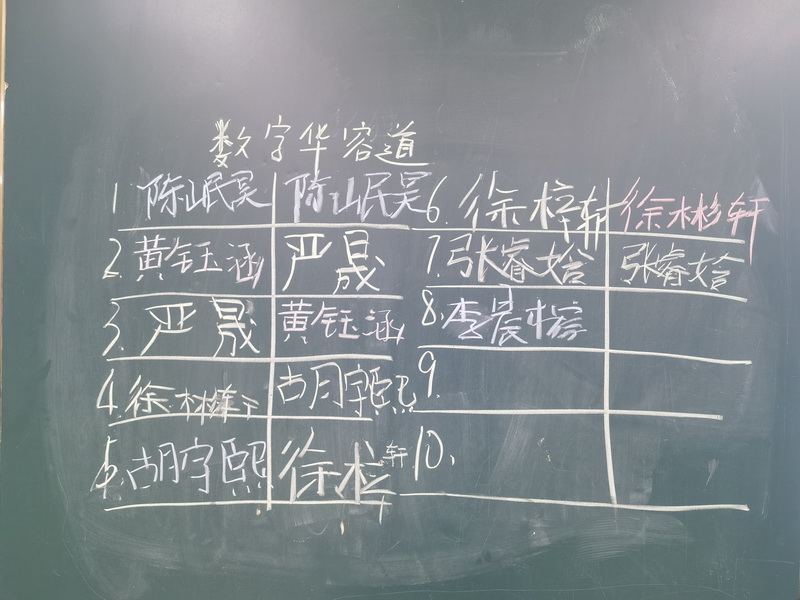 数字华容道
1 陈山岷昊 陈山岷昊
2. 黄钰涵 严晟
3. 严晟 黄钰涵
4. 徐彬轩 胡宇熙
5. 胡宇熙 徐梓轩
6. 徐梓轩 徐彬轩
7. 张睿姶 张睿姶
8. 李晨榕
9.
10.